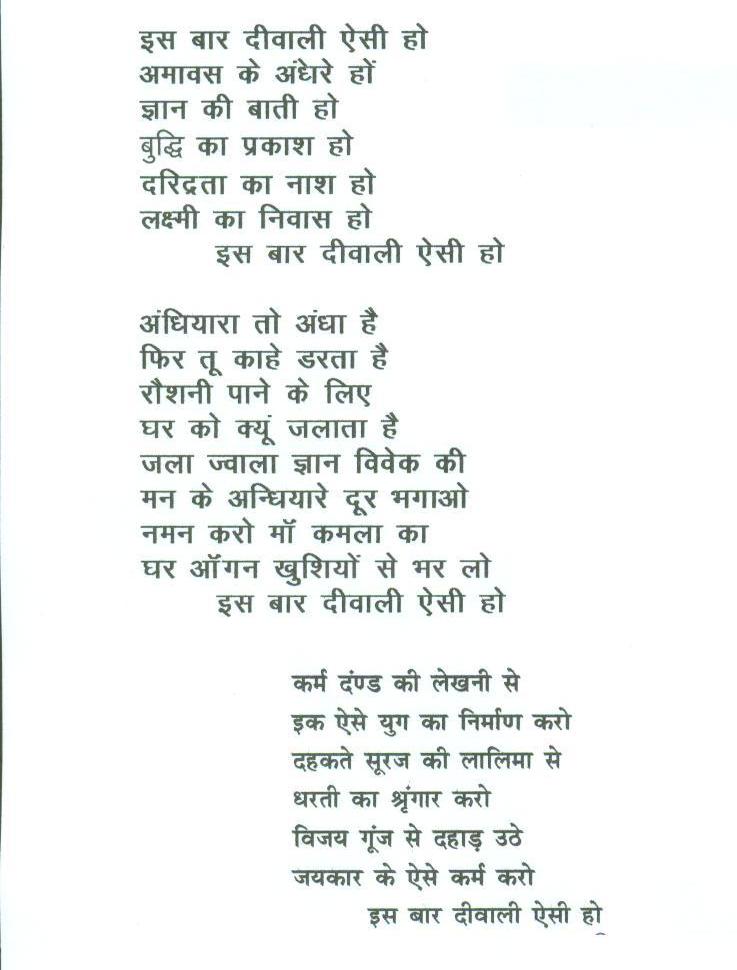 इस बार दीवाली ऐसी हो
अमावस के अंधेरे हों
ज्ञान की बाती हो
बुद्धि का प्रकाश हो
दरिद्रता का नाश हो
लक्ष्मी का निवास हो
इस बार दीवाली ऐसी हो
अंधियारा तो अंधा है
फिर तू काहे डरता है
रौशनी पाने के लिए
घर को क्यूं जलाता है
जला ज्वाला ज्ञान विवेक की
मन के अन्धियारे दूर भगाओ
नमन करो मॉ कमला का
घर ऑगन खुशियों से भर लो
इस बार दीवाली ऐसी हो
कर्म दंण्ड की लेखनी से
इक ऐसे युग का निर्माण करो
दहकते सूरज की लालिमा से
धरती का श्रृंगार करो
विजय गूंज से दहाड़ उठे
जयकार के ऐसे कर्म करो
इस बार दीवाली ऐसी हो